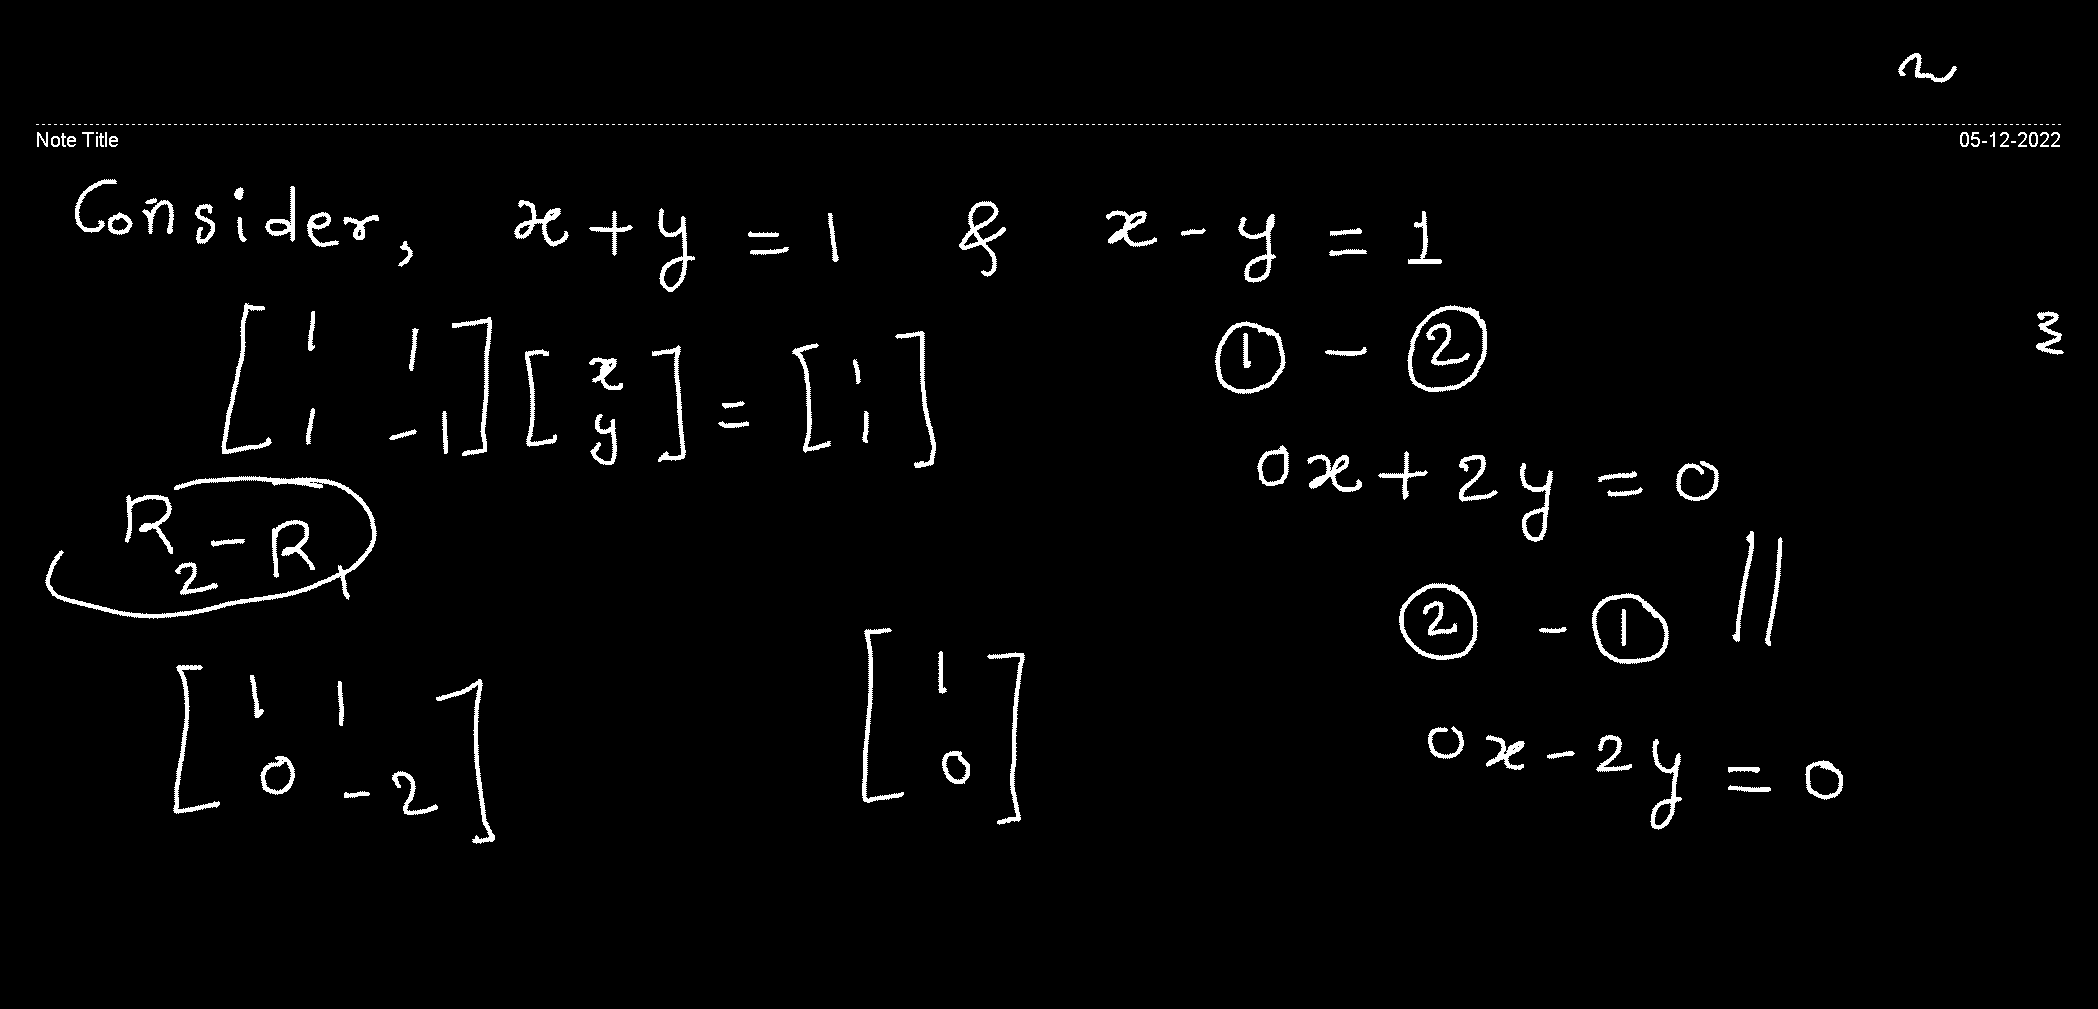 Note Title
05-12-2022
Consider, x + y = 1 & x - y = 1
[1 1; 1 -1] [x; y] = [1; 1]
① - ②
0x + 2y = 0
R2 - R1
② - ①
[1 1; 0 -2] [1; 0]
0x - 2y = 0